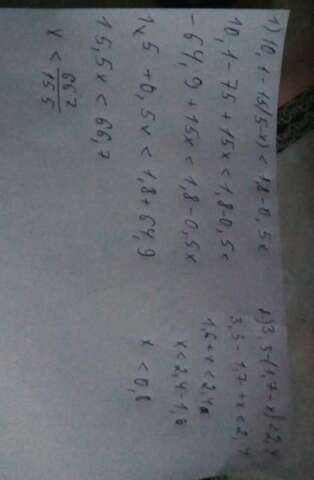 1) 10,1-15(5-x) < 18-0,5x
10,1-75+15x<1,8-0,5x
-64,9+15x<1,8-0,5x
1x,5+0,5x<1,8+64,9
15,5x<66,7
x < 667/155
2) 3,5-(1,7-x)<2,4
3,5-1,7+x<2,4
1,8+x<2,4
x<2,4-1,8
x<0,6